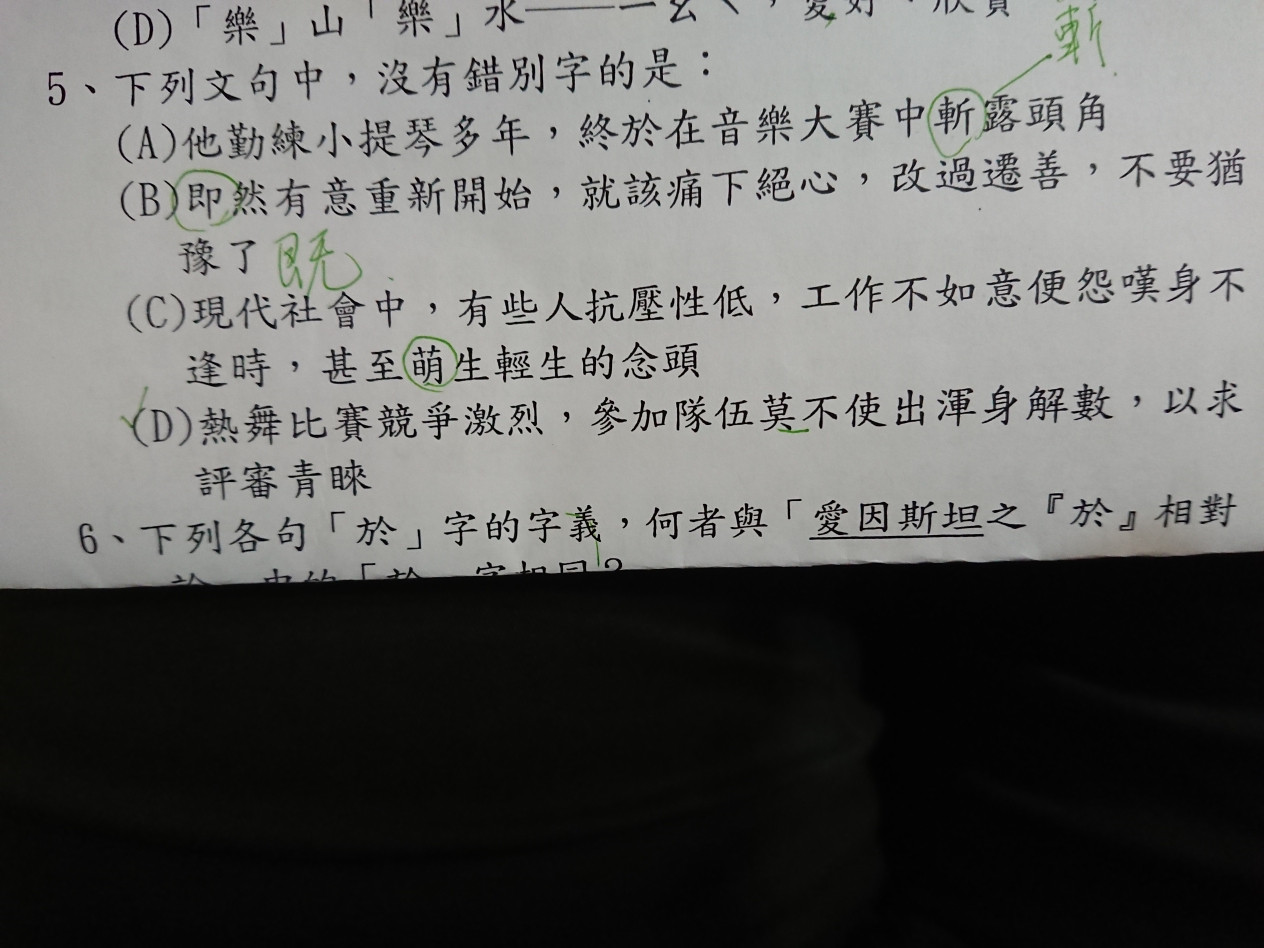 (D)「樂」山「樂」水——ㄧㄠˋ,愛好、欣賞
5、下列文句中,沒有錯別字的是:
(A)他勤練小提琴多年,終於在音樂大賽中斬露頭角
(B)即然有意重新開始,就該痛下絕心,改過遷善,不要猶
豫了 既
(C)現代社會中,有些人抗壓性低,工作不如意便怨嘆身不
逢時,甚至萌生輕生的念頭
(D)熱舞比賽競爭激烈,參加隊伍莫不使出渾身解數,以求
評審青睞
6、下列各句「於」字的字義,何者與「愛因斯坦之『於』相對